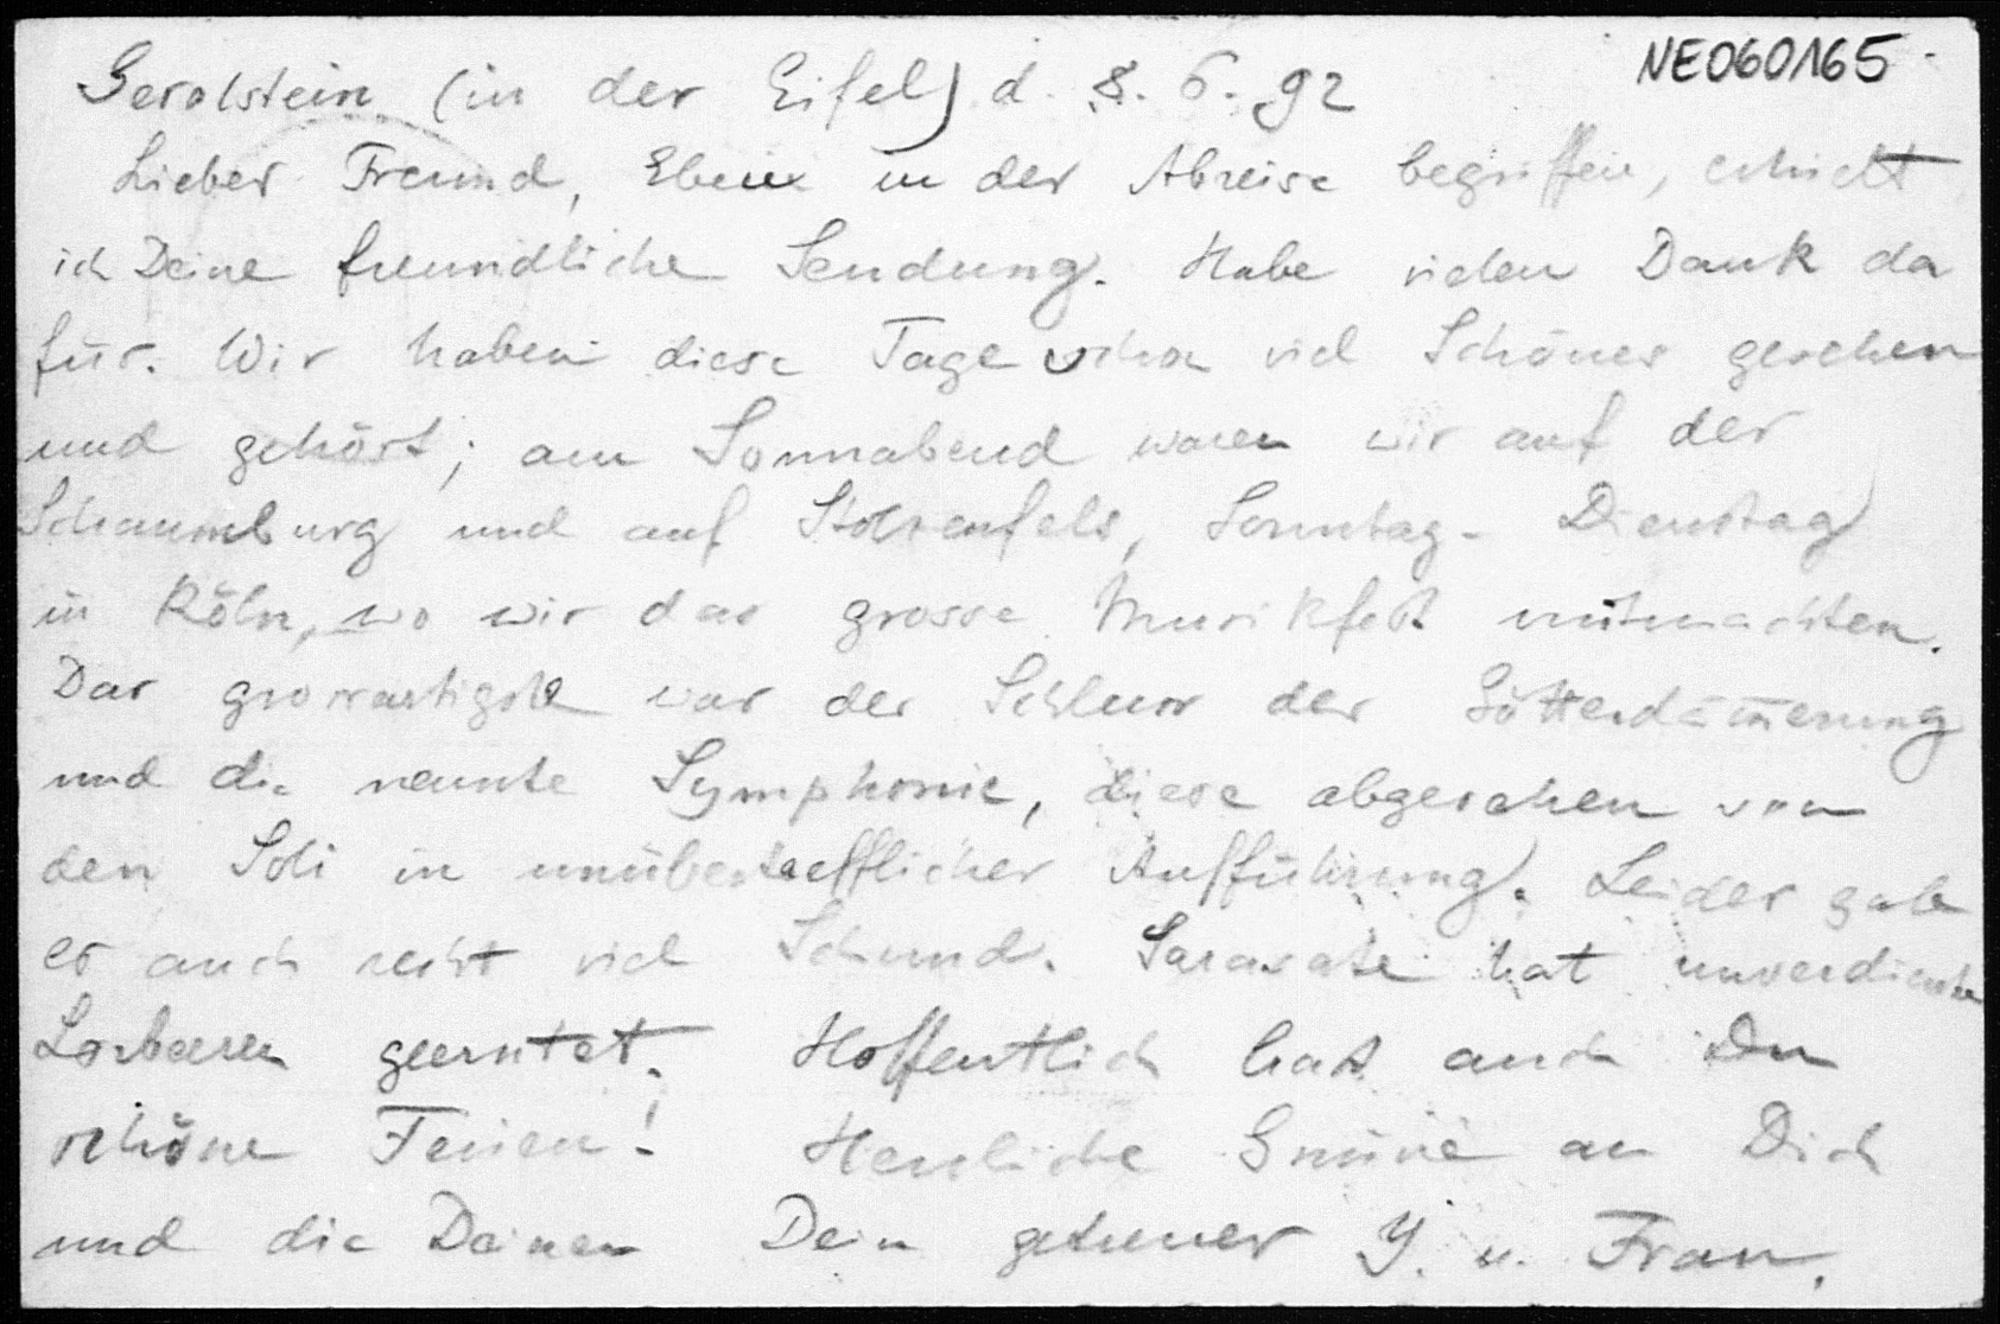 NE060165
Gerolstein (in der Eifel) d. 8. 6. 92
Lieber Freund, Eben in der Abreise begriffen, erhielt
ich Deine freundliche Sendung. Habe vielen Dank da
für. Wir haben diese Tage schon viel Schönes gesehen
und gehört; am Sonnabend waren wir auf der
Schaumburg und auf Stolzenfels, Sonntag - Dienstag
in Köln, wo wir das grosse Musikfest mitmachten.
Das grossartigste war der Schluss der Götterdäm̅erung
und die neunte Symphonie, diese abgesehen von
den Soli in unübertrefflicher Aufführung. Leider gab
es auch recht viel Schund. Sarasate hat unverdiente
Lorbeeren geerntet. Hoffentlich hast auch Du
schöne Ferien! Herzliche Grüsse an Dich
und die Deinen Dein getreuer Y. u. Frau.